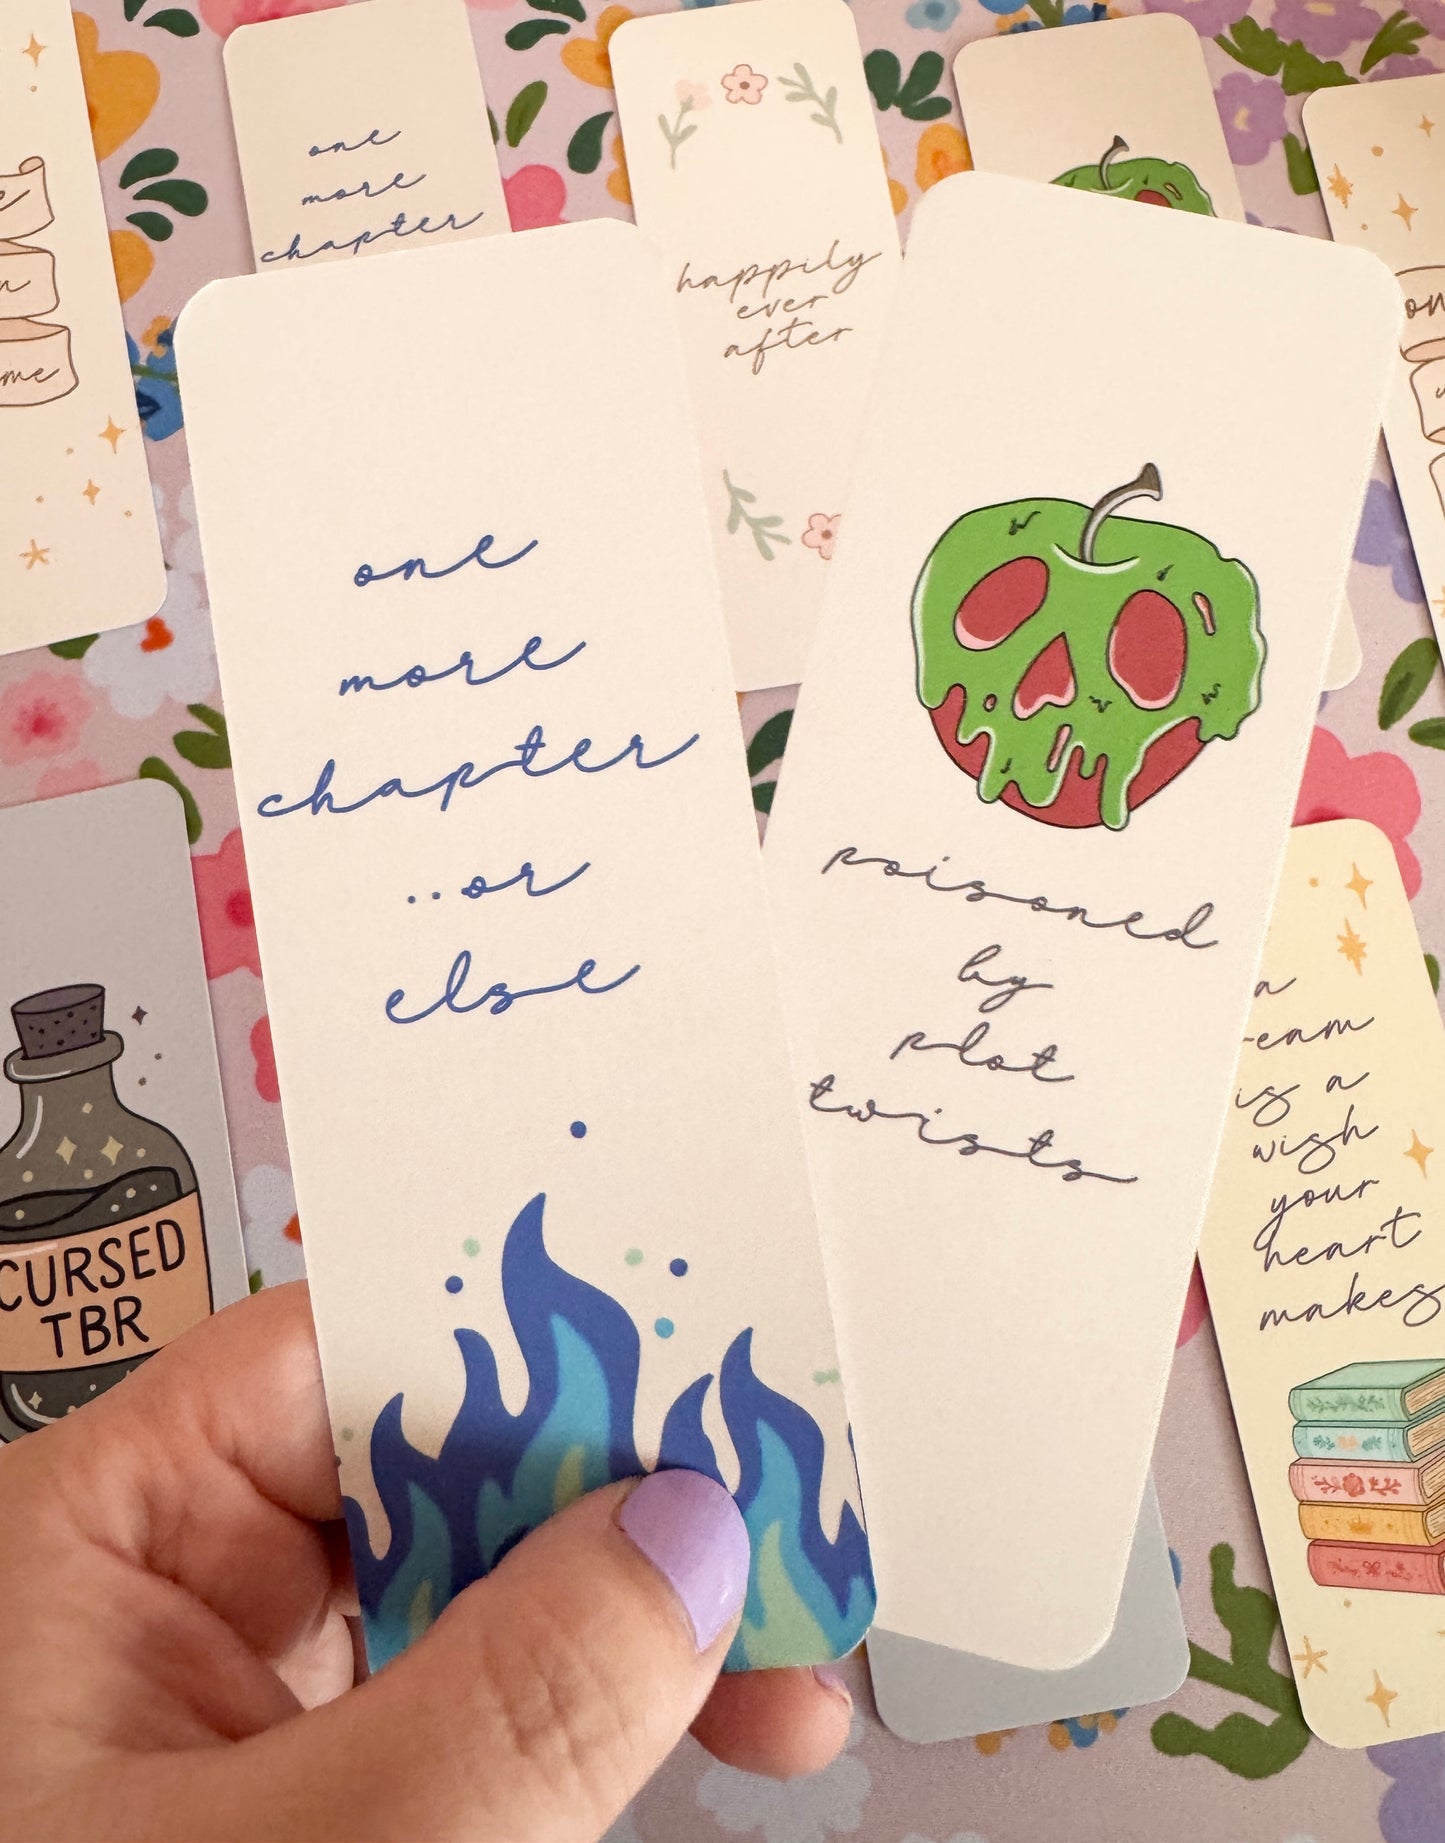 me
one
more
chapter
happily
ever
after
one
more
chapter
..or
else
poisoned
by
plot
twists
CURSED
TBR
a
is a
wish
your
heart
makes